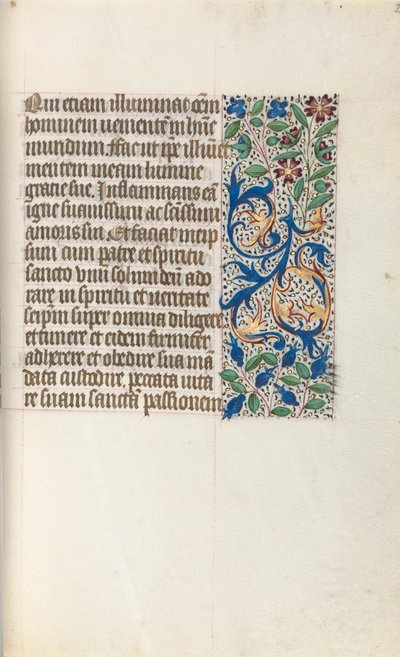 Qui etiam illuminat oēm
hominem uenientē in hūc
mundum. Faciat ipē illumīet
mentem meam lumine
gracie sue. Inflammans eā
igne suauissimi ac scīssimi
amoris sui. Et faciat me ip
sum cum patre et spiritu
sancto vnū solum deū ado
rare in spiritu et ueritate
seipm super omnia diligere
et timere et eidem firmiter
adherere et obedire sua mā
data custodire. peccata uita
re suam sanctā passionem
2